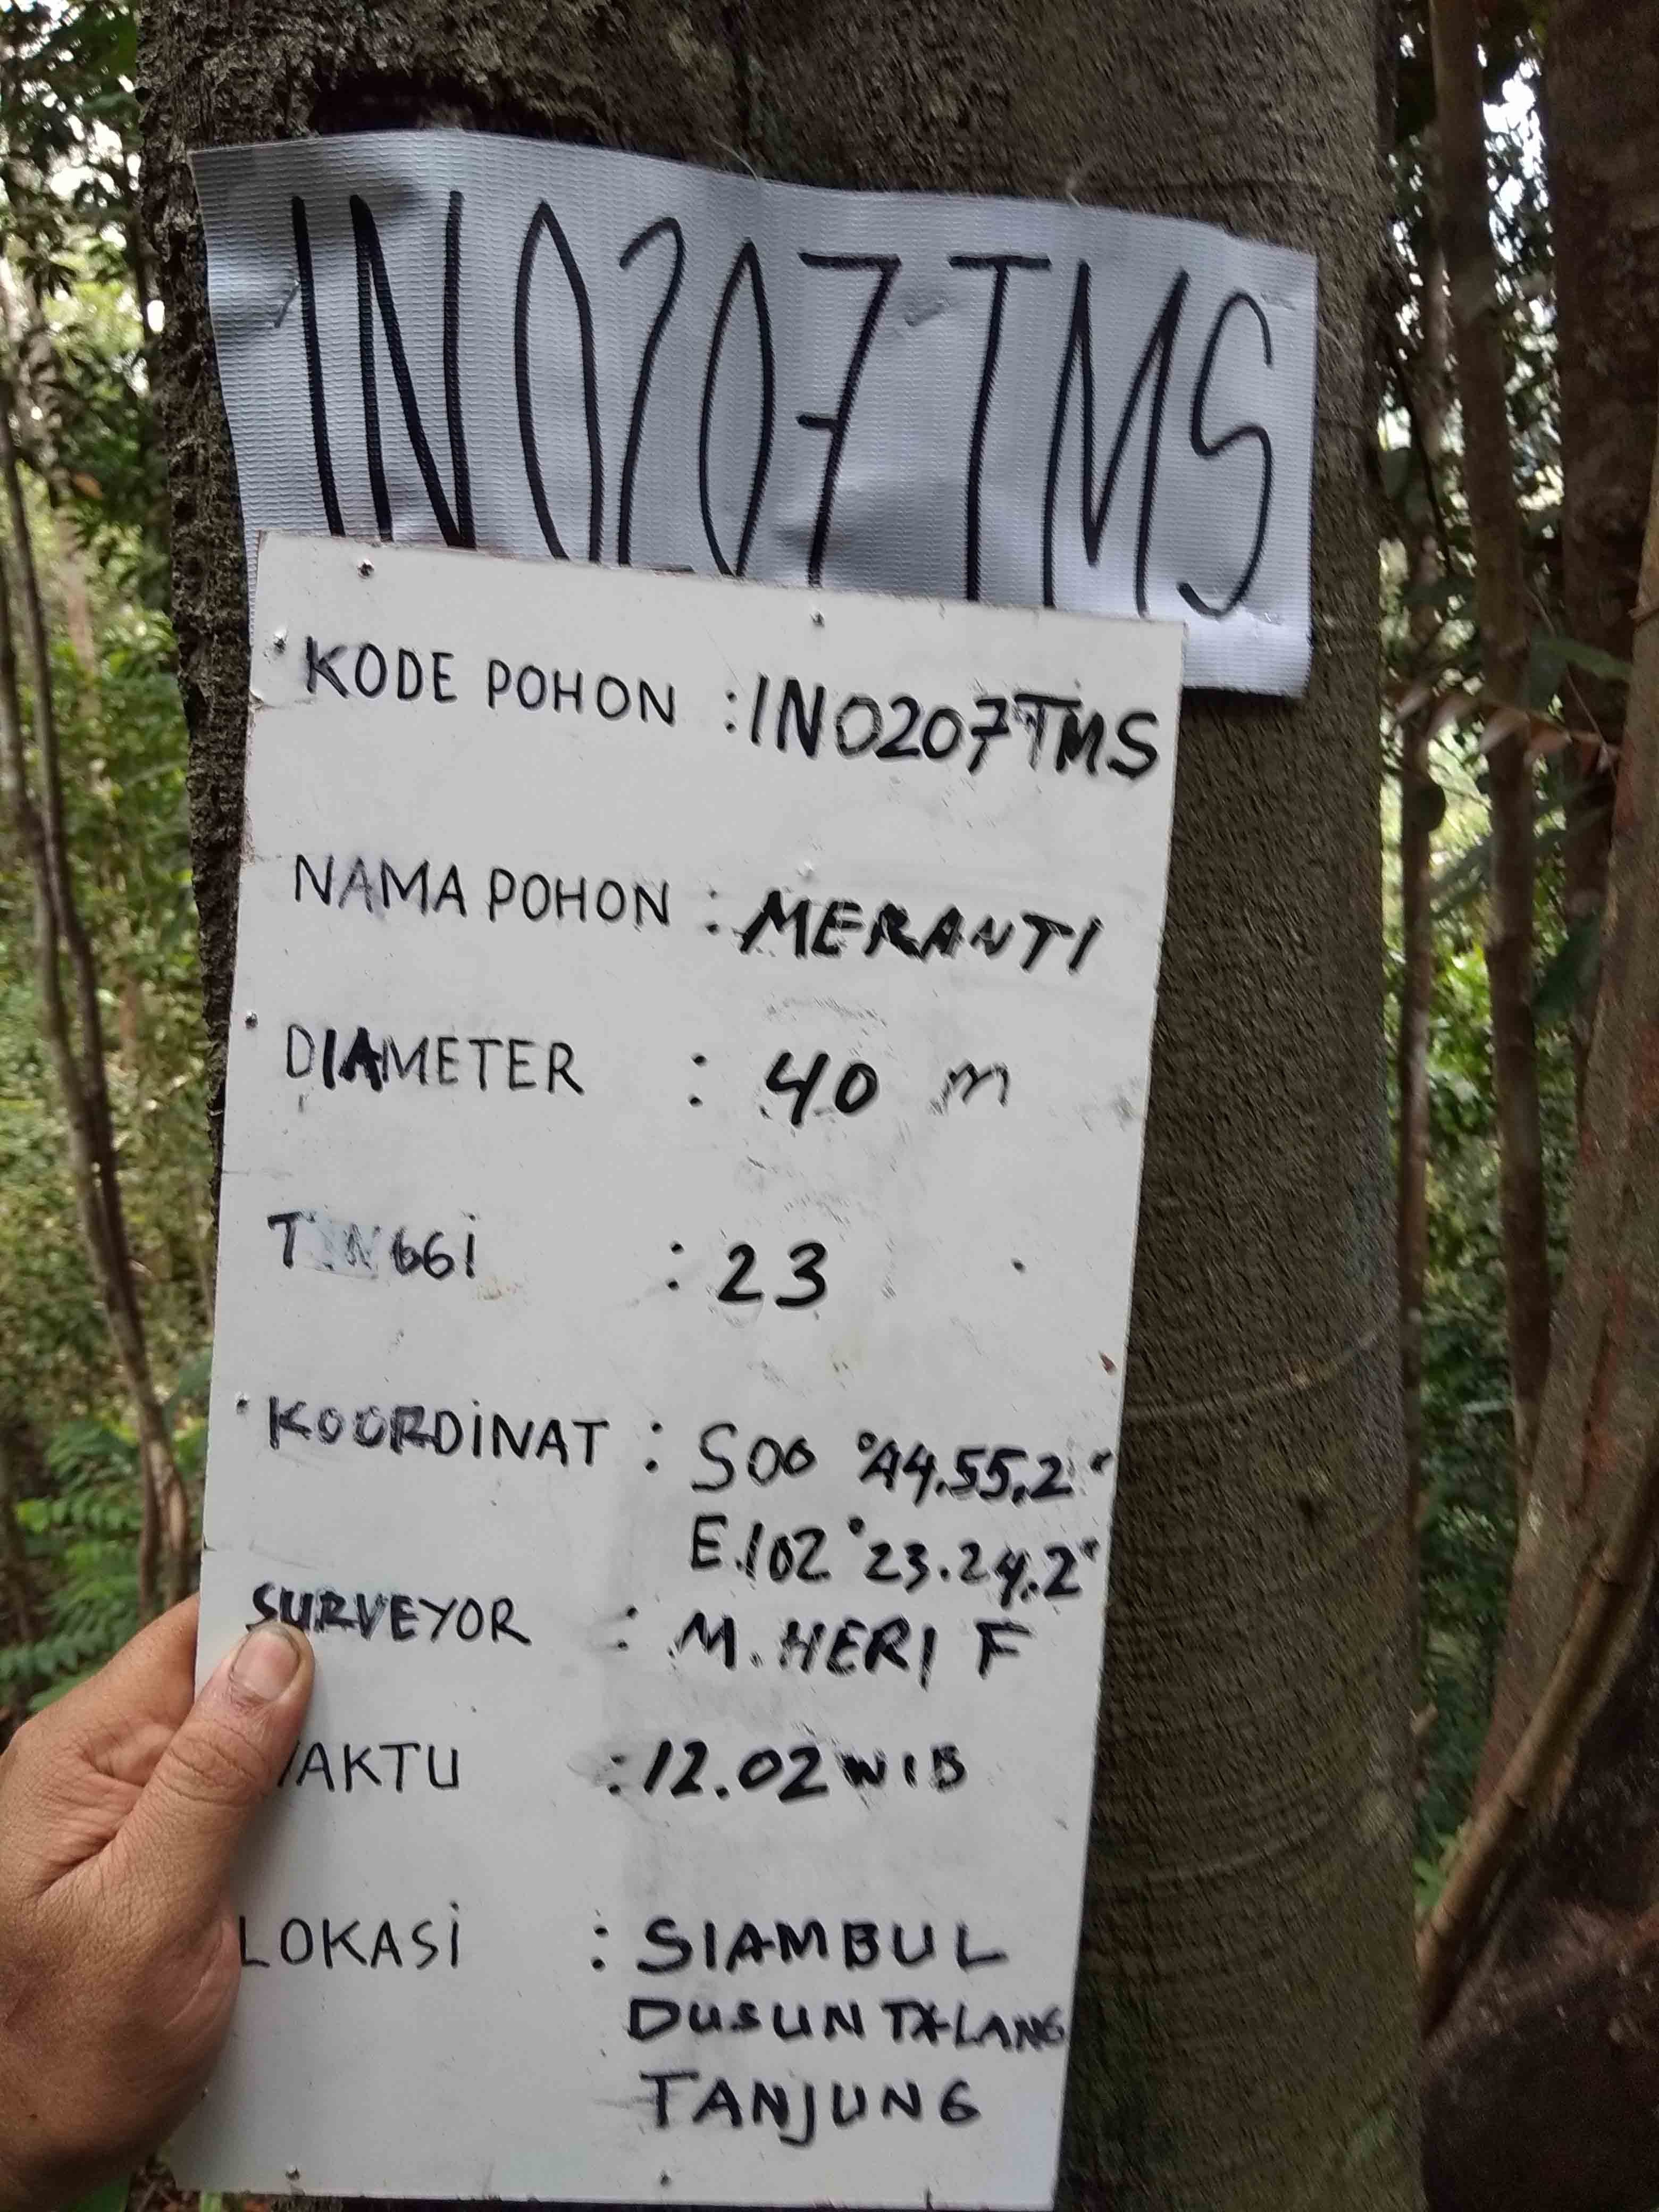 IN0207TMS
KODE POHON : IN0207TMS
NAMA POHON : MERANTI
DIAMETER : 40 m
TINGGi : 23
KOORDiNAT : S00 °44.55,2"
E.102°23.24.2"
SURVEYOR : M. HERI F
AKTU : 12.02 WIB
LOKASi : SIAMBUL
DUSUN TALANG
TANJUNG